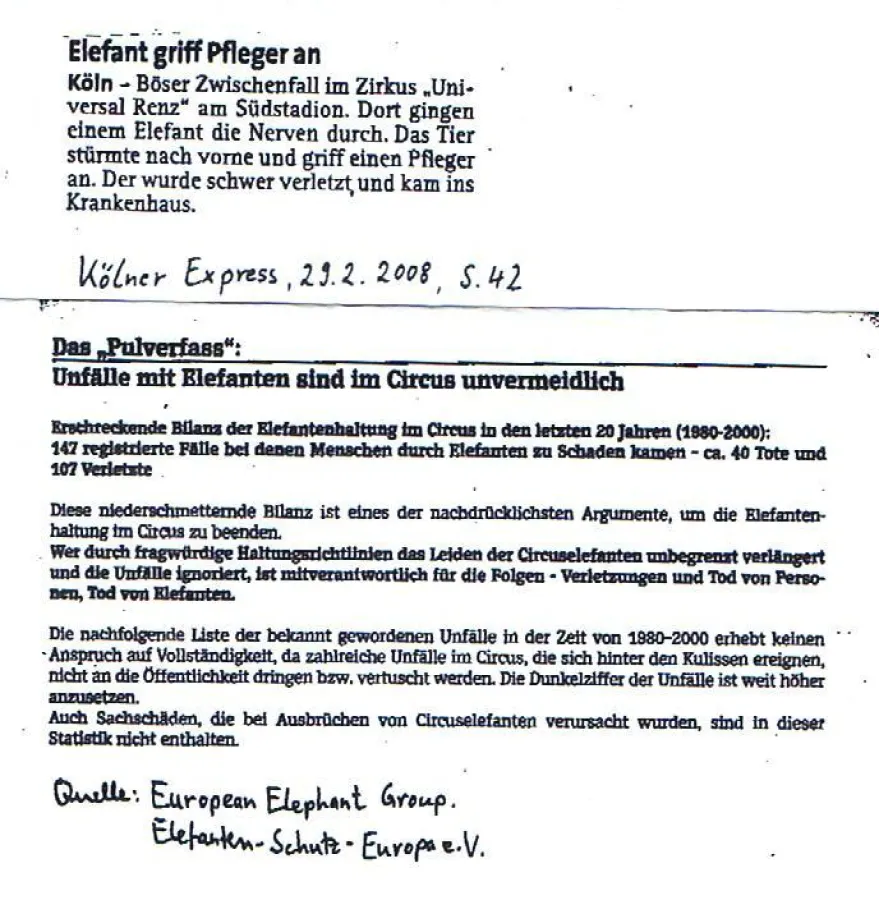 Elefant griff Pfleger an
Köln – Böser Zwischenfall im Zirkus „Uni-
versal Renz“ am Südstadion. Dort gingen
einem Elefant die Nerven durch. Das Tier
stürmte nach vorne und griff einen Pfleger
an. Der wurde schwer verletzt und kam ins
Krankenhaus.
Kölner Express, 29.2.2008, S.42
Das „Pulverfass“:
Unfälle mit Elefanten sind im Circus unvermeidlich
Erschreckende Bilanz der Elefantenhaltung im Circus in den letzten 20 Jahren (1980-2000):
147 registrierte Fälle bei denen Menschen durch Elefanten zu Schaden kamen – ca. 40 Tote und
107 Verletzte
Diese niederschmetternde Bilanz ist eines der nachdrücklichsten Argumente, um die Elefanten-
haltung im Circus zu beenden.
Wer durch fragwürdige Haltungsrichtlinien das Leiden der Circuselefanten unbegrenzt verlängert
und die Unfälle ignoriert, ist mitverantwortlich für die Folgen - Verletzungen und Tod von Perso-
nen, Tod von Elefanten.
Die nachfolgende Liste der bekannt gewordenen Unfälle in der Zeit von 1980-2000 erhebt keinen
Anspruch auf Vollständigkeit, da zahlreiche Unfälle im Circus, die sich hinter den Kulissen ereignen,
nicht an die Öffentlichkeit dringen bzw. vertuscht werden. Die Dunkelziffer der Unfälle ist weit höher
anzusetzen.
Auch Sachschäden, die bei Ausbrüchen von Circuselefanten verursacht wurden, sind in dieser
Statistik nicht enthalten.
Quelle: European Elephant Group.
Elefanten-Schutz-Europa e.V.